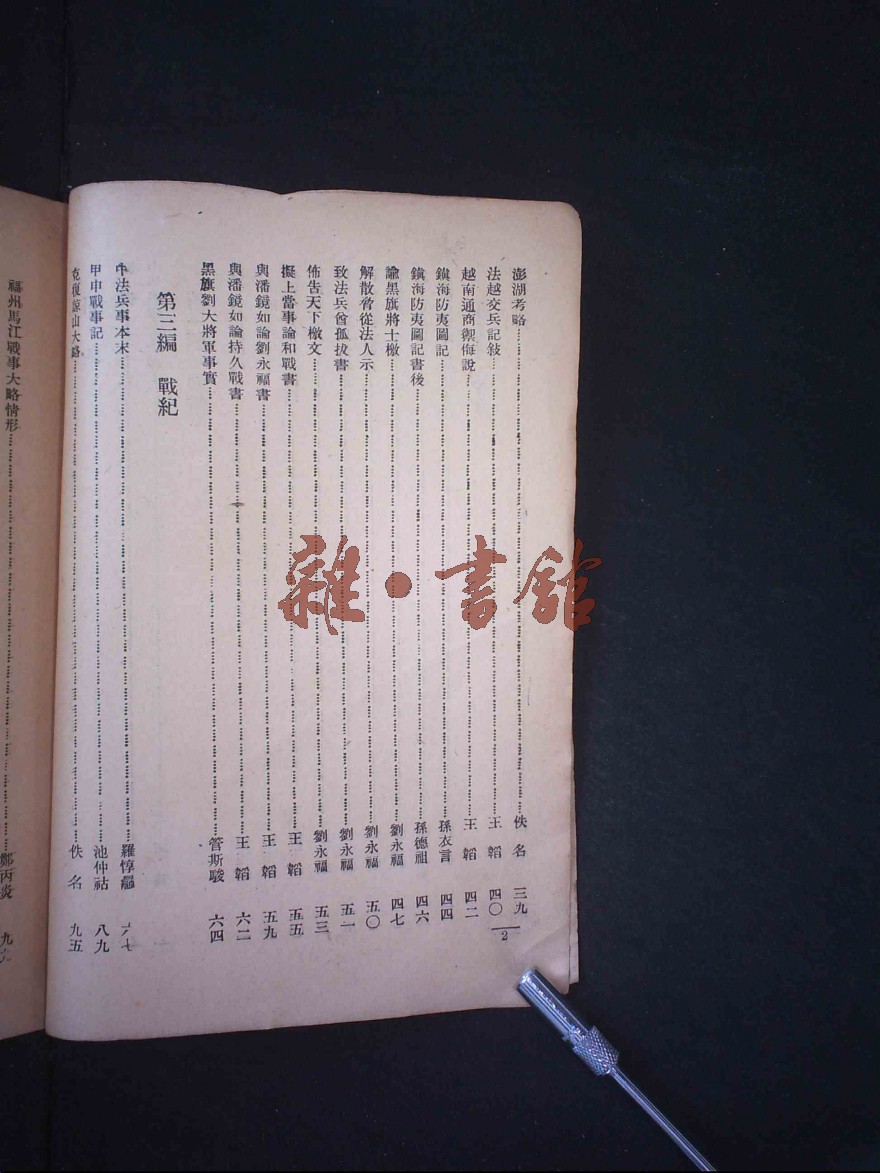 澎湖考略 佚名 三九
法越交兵記敍 王韜 四〇
越南通商禦侮說 王韜 四二
鎮海防夷圖記 孫衣言 四四
鎮海防夷圖記書後 孫德祖 四六
諭黑旗將士檄 劉永福 四七
解散脅從法人示 劉永福 五〇
致法兵酋孤拔書 劉永福 五一
佈告天下檄文 劉永福 五三
擬上當事論和戰書 王韜 五五
與潘鏡如論劉永福書 王韜 五九
與潘鏡如論持久戰書 王韜 六二
黑旗劉大將軍事實 管斯駿 六四
第三編 戰紀
中法兵事本末 羅惇曧 六七
甲申戰事記 池仲祜 八九
克復諒山大略 佚名 九五
2
福州馬江戰事大略情形 鄭丙炎
雜·書館